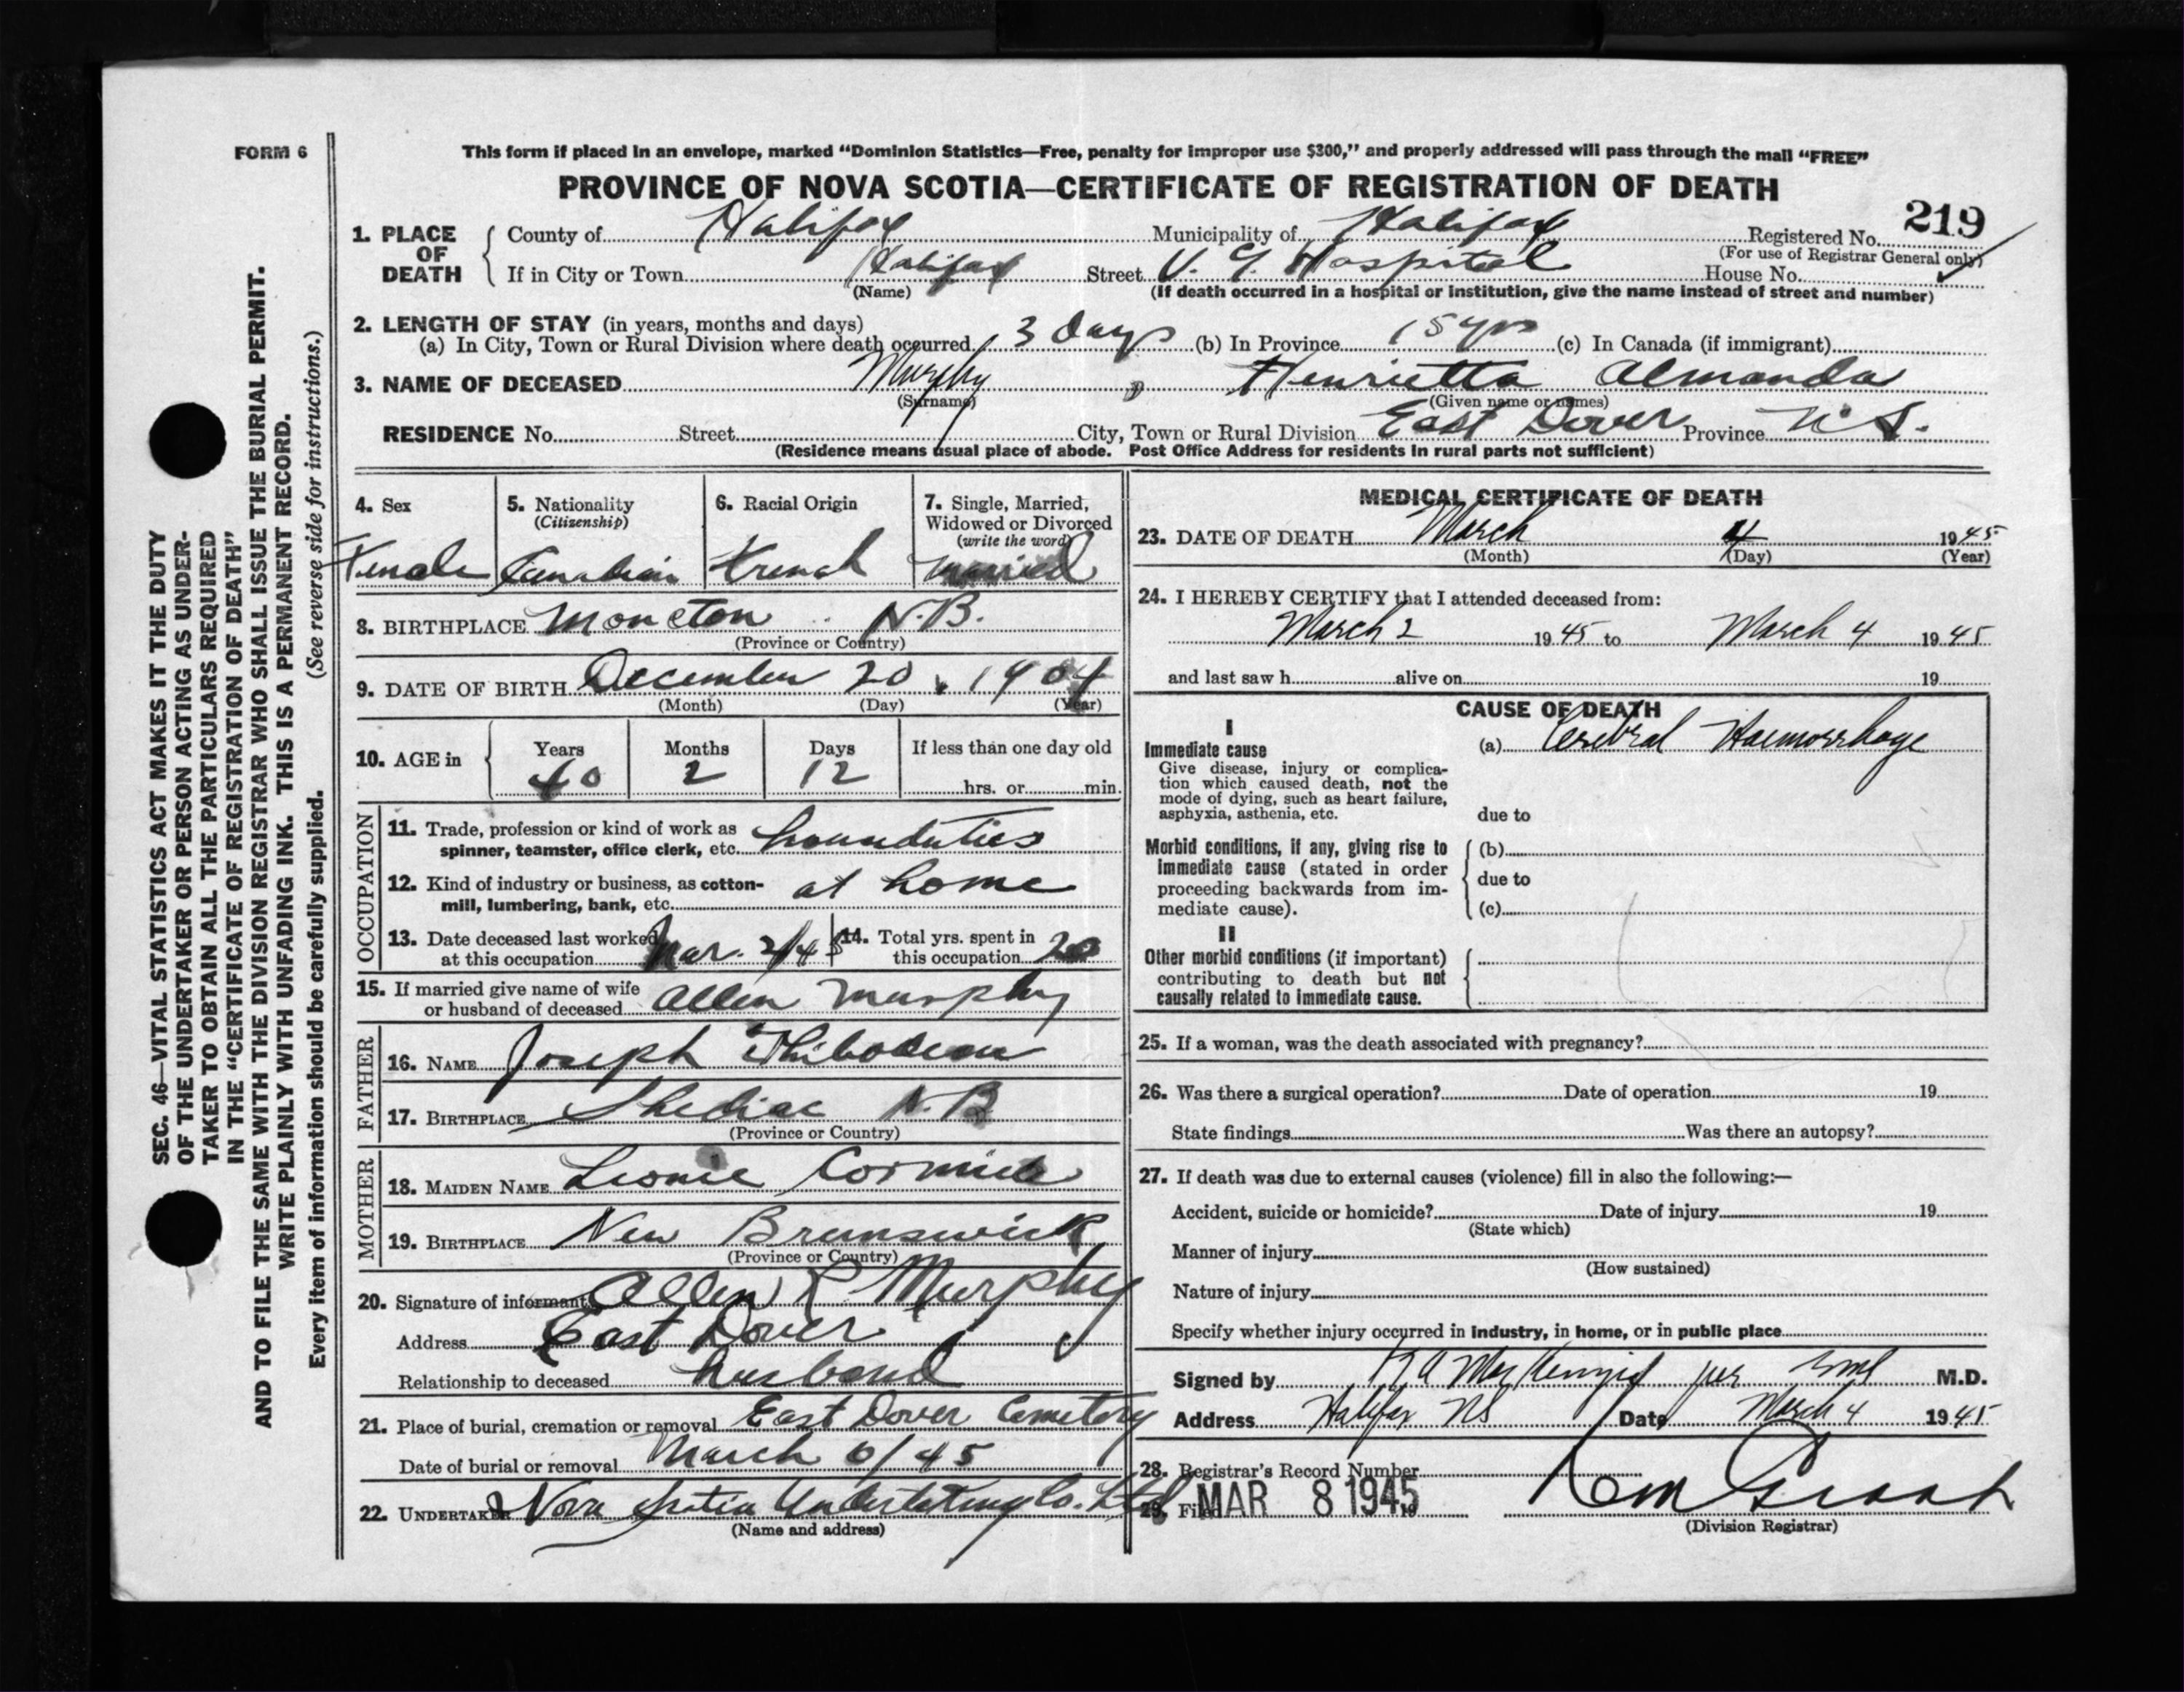 FORM 6
This form if placed in an envelope, marked “Dominion Statistics—Free, penalty for improper use $300,” and properly addressed will pass through the mail “FREE”
PROVINCE OF NOVA SCOTIA—CERTIFICATE OF REGISTRATION OF DEATH
219
1. PLACE OF DEATH
County of Halifax Municipality of Halifax Registered No.
(For use of Registrar General only)
If in City or Town Halifax Street V. G. Hospital House No.
(Name) (If death occurred in a hospital or institution, give the name instead of street and number)
2. LENGTH OF STAY (in years, months and days)
(a) In City, Town or Rural Division where death occurred 3 days (b) In Province 15 yrs (c) In Canada (if immigrant)
3. NAME OF DECEASED Murphy, Henrietta Almanda
(Surname) (Given name or names)
RESIDENCE No. Street City, Town or Rural Division East Dover Province N.S.
(Residence means usual place of abode. Post Office Address for residents in rural parts not sufficient)
4. Sex
Female
5. Nationality
(Citizenship)
Canadian
6. Racial Origin
French
7. Single, Married,
Widowed or Divorced
(write the word)
married
8. BIRTHPLACE Moncton N.B.
(Province or Country)
9. DATE OF BIRTH December 20, 1904
(Month) (Day) (Year)
10. AGE in
Years Months Days If less than one day old
40 2 12 hrs. or min.
OCCUPATION
11. Trade, profession or kind of work as
spinner, teamster, office clerk, etc. houseduties
12. Kind of industry or business, as cotton-
mill, lumbering, bank, etc. at home
13. Date deceased last worked
at this occupation Mar. 2/45
14. Total yrs. spent in
this occupation 20
15. If married give name of wife
or husband of deceased Allen Murphy
FATHER
16. NAME Joseph Thibodeau
17. BIRTHPLACE Shediac N.B.
(Province or Country)
MOTHER
18. MAIDEN NAME Leonie Cormier
19. BIRTHPLACE New Brunswick
(Province or Country)
20. Signature of informant Allen R Murphy
Address East Dover
Relationship to deceased husband
21. Place of burial, cremation or removal East Dover Cemetery
Date of burial or removal March 6/45
22. UNDERTAKER Nova Scotia Undertaking Co. Ltd
(Name and address)
MEDICAL CERTIFICATE OF DEATH
23. DATE OF DEATH March 4 1945
(Month) (Day) (Year)
24. I HEREBY CERTIFY that I attended deceased from:
March 2 1945 to March 4 1945
and last saw h alive on 19
CAUSE OF DEATH
I
Immediate cause
Give disease, injury or complica-
tion which caused death, not the
mode of dying, such as heart failure,
asphyxia, asthenia, etc.
(a) Cerebral Haemorrhage
due to
Morbid conditions, if any, giving rise to
immediate cause (stated in order
proceeding backwards from im-
mediate cause).
(b)
due to
(c)
II
Other morbid conditions (if important)
contributing to death but not
causally related to immediate cause.
25. If a woman, was the death associated with pregnancy?
26. Was there a surgical operation? Date of operation 19
State findings Was there an autopsy?
27. If death was due to external causes (violence) fill in also the following:—
Accident, suicide or homicide? Date of injury 19
(State which)
Manner of injury
(How sustained)
Nature of injury
Specify whether injury occurred in industry, in home, or in public place
Signed by MacKenzie per M.D.
Address Halifax NS Date March 4 1945
28. Registrar's Record Number
29. Filed MAR 8 1945 19
(Division Registrar)
SEC. 46—VITAL STATISTICS ACT MAKES IT THE DUTY
OF THE UNDERTAKER OR PERSON ACTING AS UNDER-
TAKER TO OBTAIN ALL THE PARTICULARS REQUIRED
IN THE “CERTIFICATE OF REGISTRATION OF DEATH”
AND TO FILE THE SAME WITH THE DIVISION REGISTRAR WHO SHALL ISSUE THE BURIAL PERMIT.
WRITE PLAINLY WITH UNFADING INK. THIS IS A PERMANENT RECORD.
Every item of information should be carefully supplied. (See reverse side for instructions.)